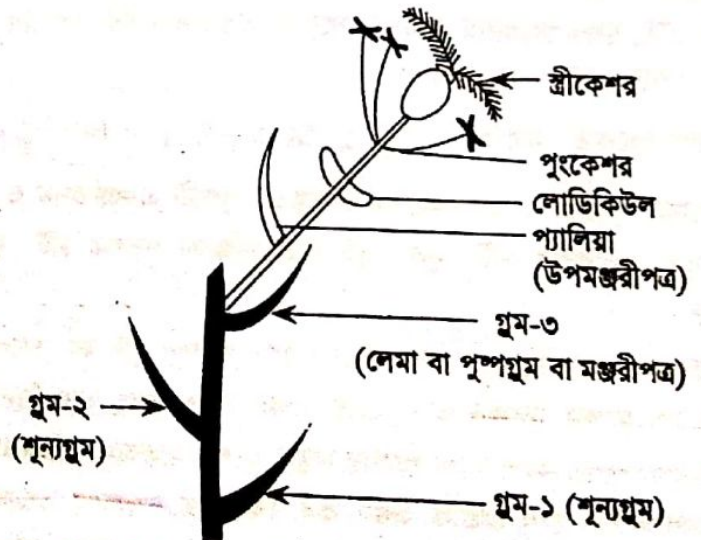 স্ত্রীকেশর
পুংকেশর
লোডিকিউল
প্যালিয়া
(উপমঞ্জরীপত্র)
গ্লুম-৩
(লেমা বা পুষ্পগ্লুম বা মঞ্জরীপত্র)
গ্লুম-২
(শূন্যগ্লুম)
গ্লুম-১ (শূন্যগ্লুম)